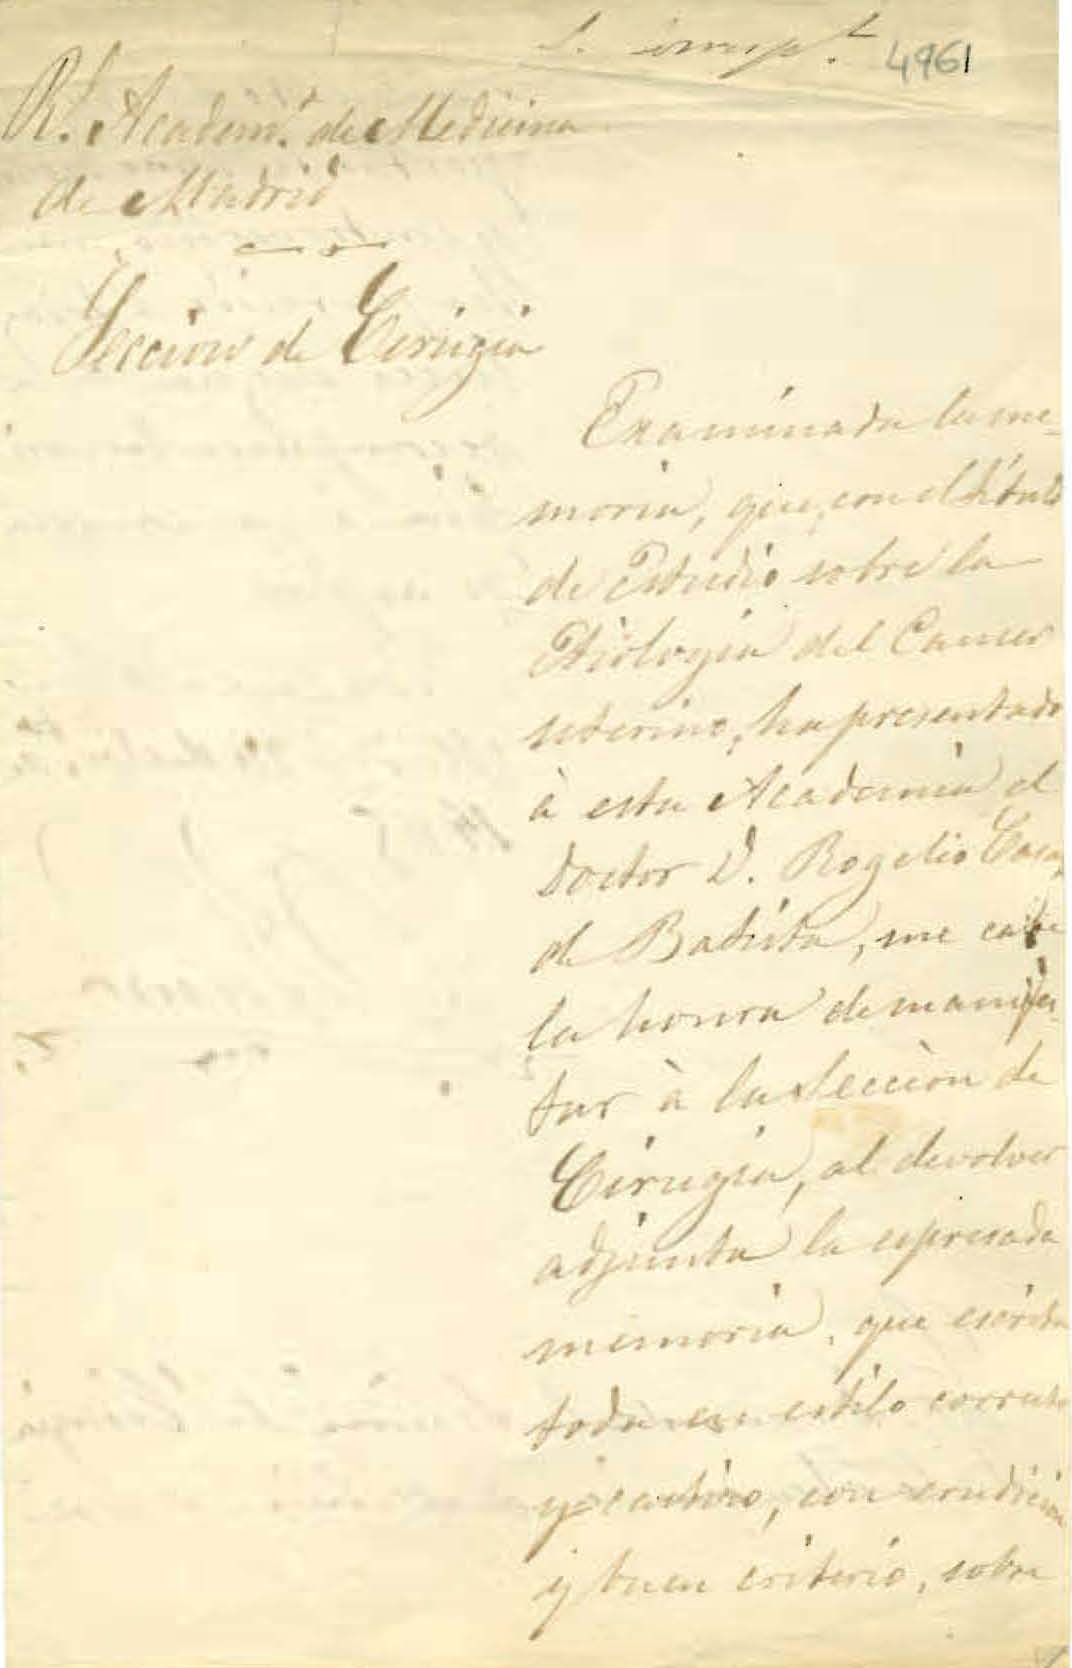 4961
Rl. Academa. de Medicina
de Madrid
Seccion de Cirugia
Examinada la me-
moria, que, con el título
de Estudio sobre la
Etiologia del Cancer
uterino, ha presentado
à esta Academia el
Doctor D. Rogelio Casas
de Batista, me cabe
la honra de manifes-
tar à la Seccion de
Cirugia, al devolver
adjunta la espresada
memoria, que escrita
toda en estilo correcto
y castizo, con erudicion
y buen criterio, sobre